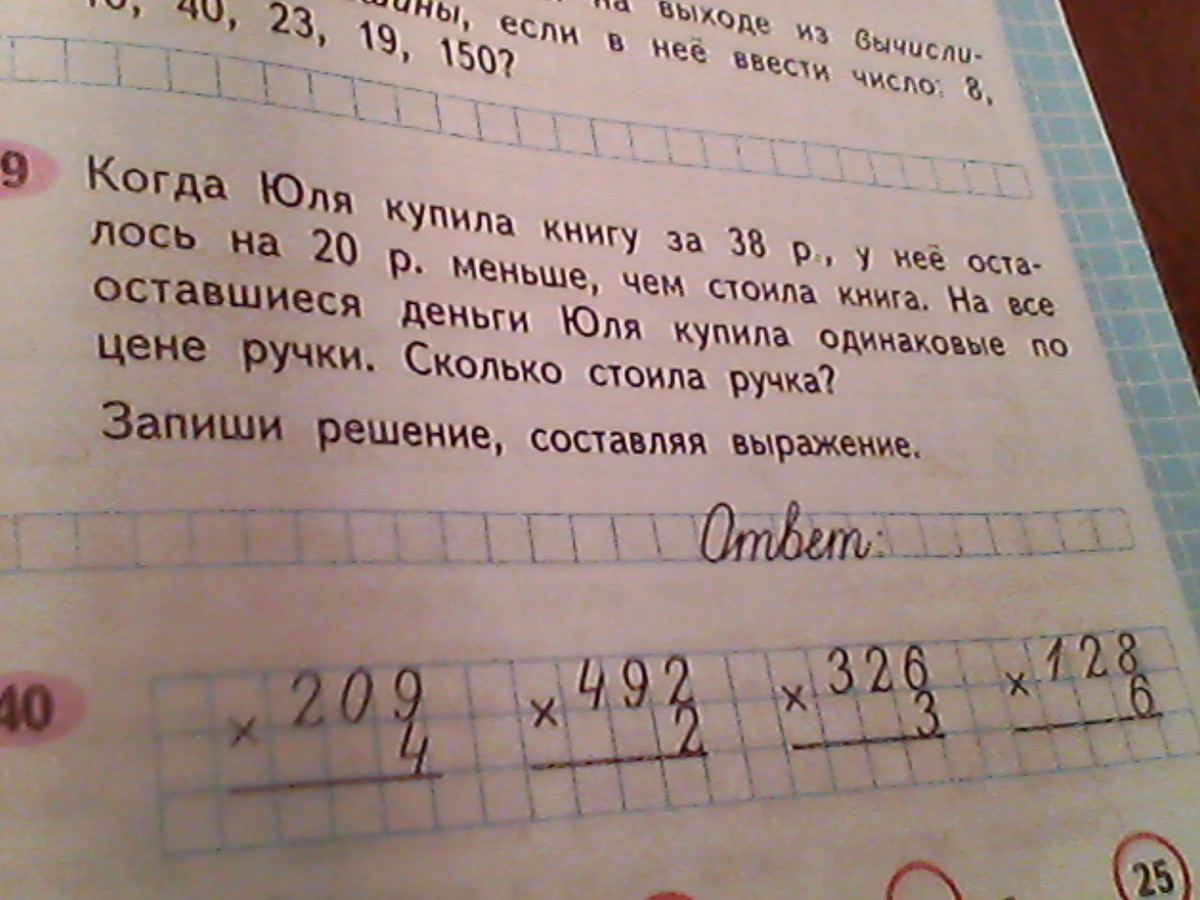 на выходе из вычисли-
если в неё ввести число: 8,
40, 23, 19, 150?
9 Когда Юля купила книгу за 38 р., у неё оста-
лось на 20 р. меньше, чем стоила книга. На все
оставшиеся деньги Юля купила одинаковые по
цене ручки. Сколько стоила ручка?
Запиши решение, составляя выражение.
Ответ:
40 × 209 × 492 × 326 × 128
4 2 3 6
25